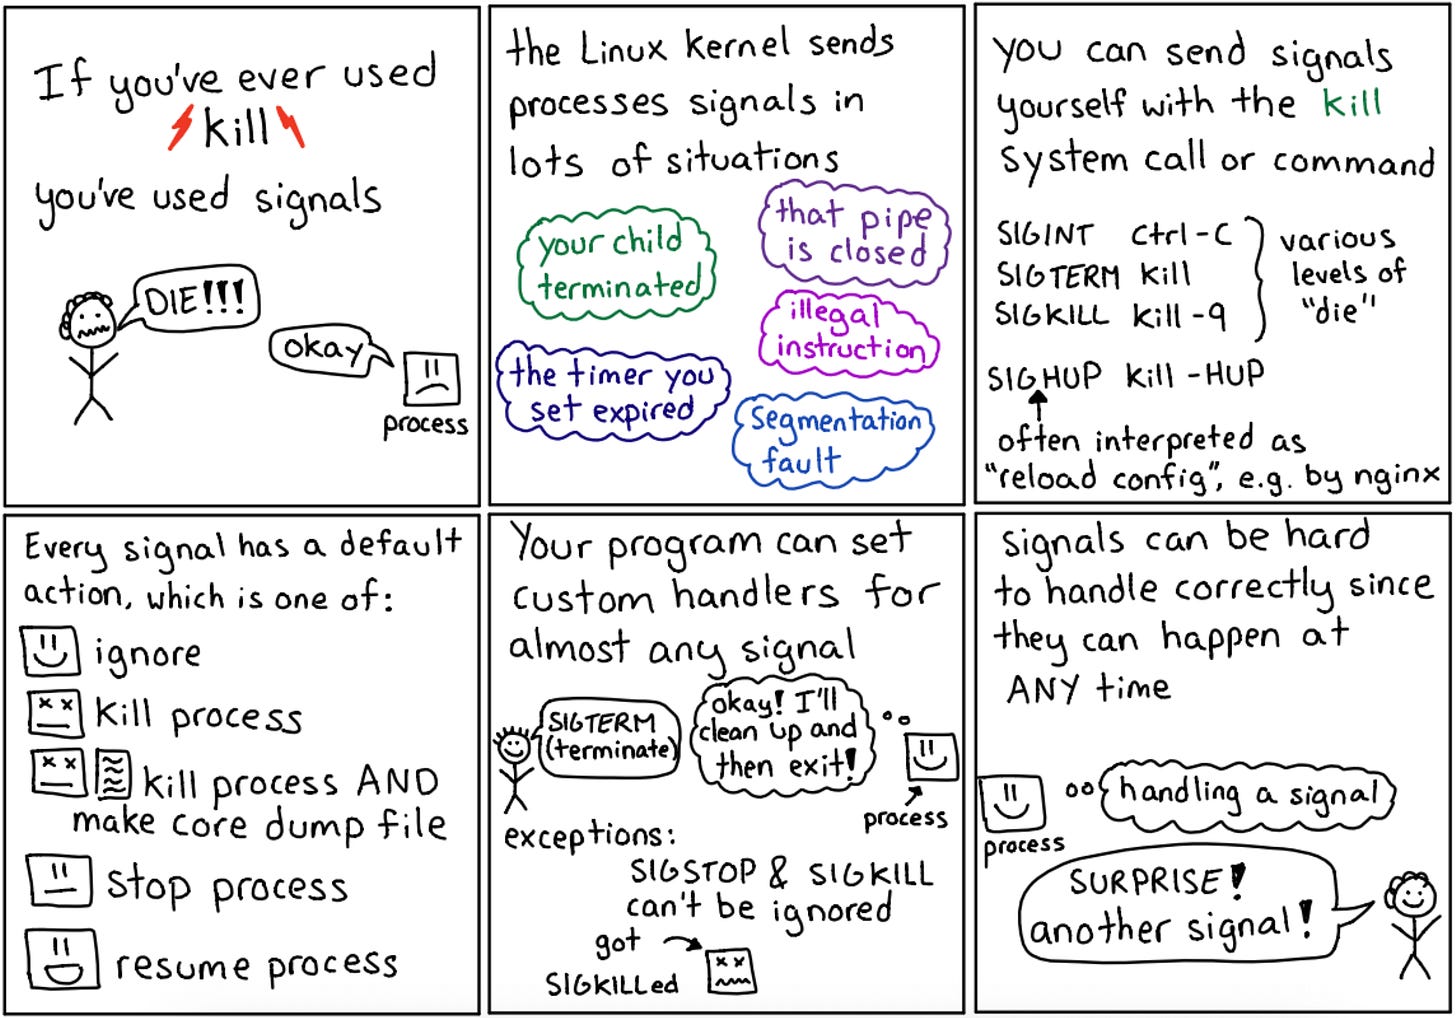 If you've ever used
kill
you've used signals
DIE!!!
okay
process
the Linux kernel sends
processes signals in
lots of situations
your child
terminated
that pipe
is closed
illegal
instruction
the timer you
set expired
segmentation
fault
you can send signals
yourself with the kill
system call or command
SIGINT ctrl-C
SIGTERM kill
SIGKILL kill -9
various
levels of
"die"
SIGHUP kill -HUP
often interpreted as
"reload config", e.g. by nginx
Every signal has a default
action, which is one of:
ignore
kill process
kill process AND
make core dump file
stop process
resume process
Your program can set
custom handlers for
almost any signal
SIGTERM
(terminate)
okay! I'll
clean up and
then exit!
process
exceptions:
SIGSTOP & SIGKILL
can't be ignored
got
SIGKILLed
signals can be hard
to handle correctly since
they can happen at
ANY time
process
handling a signal
SURPRISE!
another signal!